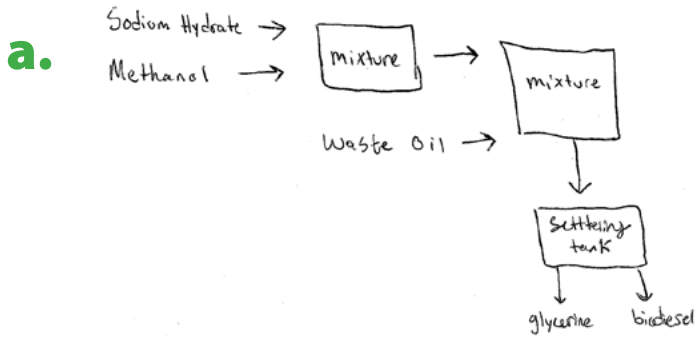 a.
Sodium Hydrate
Methanol
mixture
mixture
Waste Oil
Setttering
tank
glycerine
biodiesel